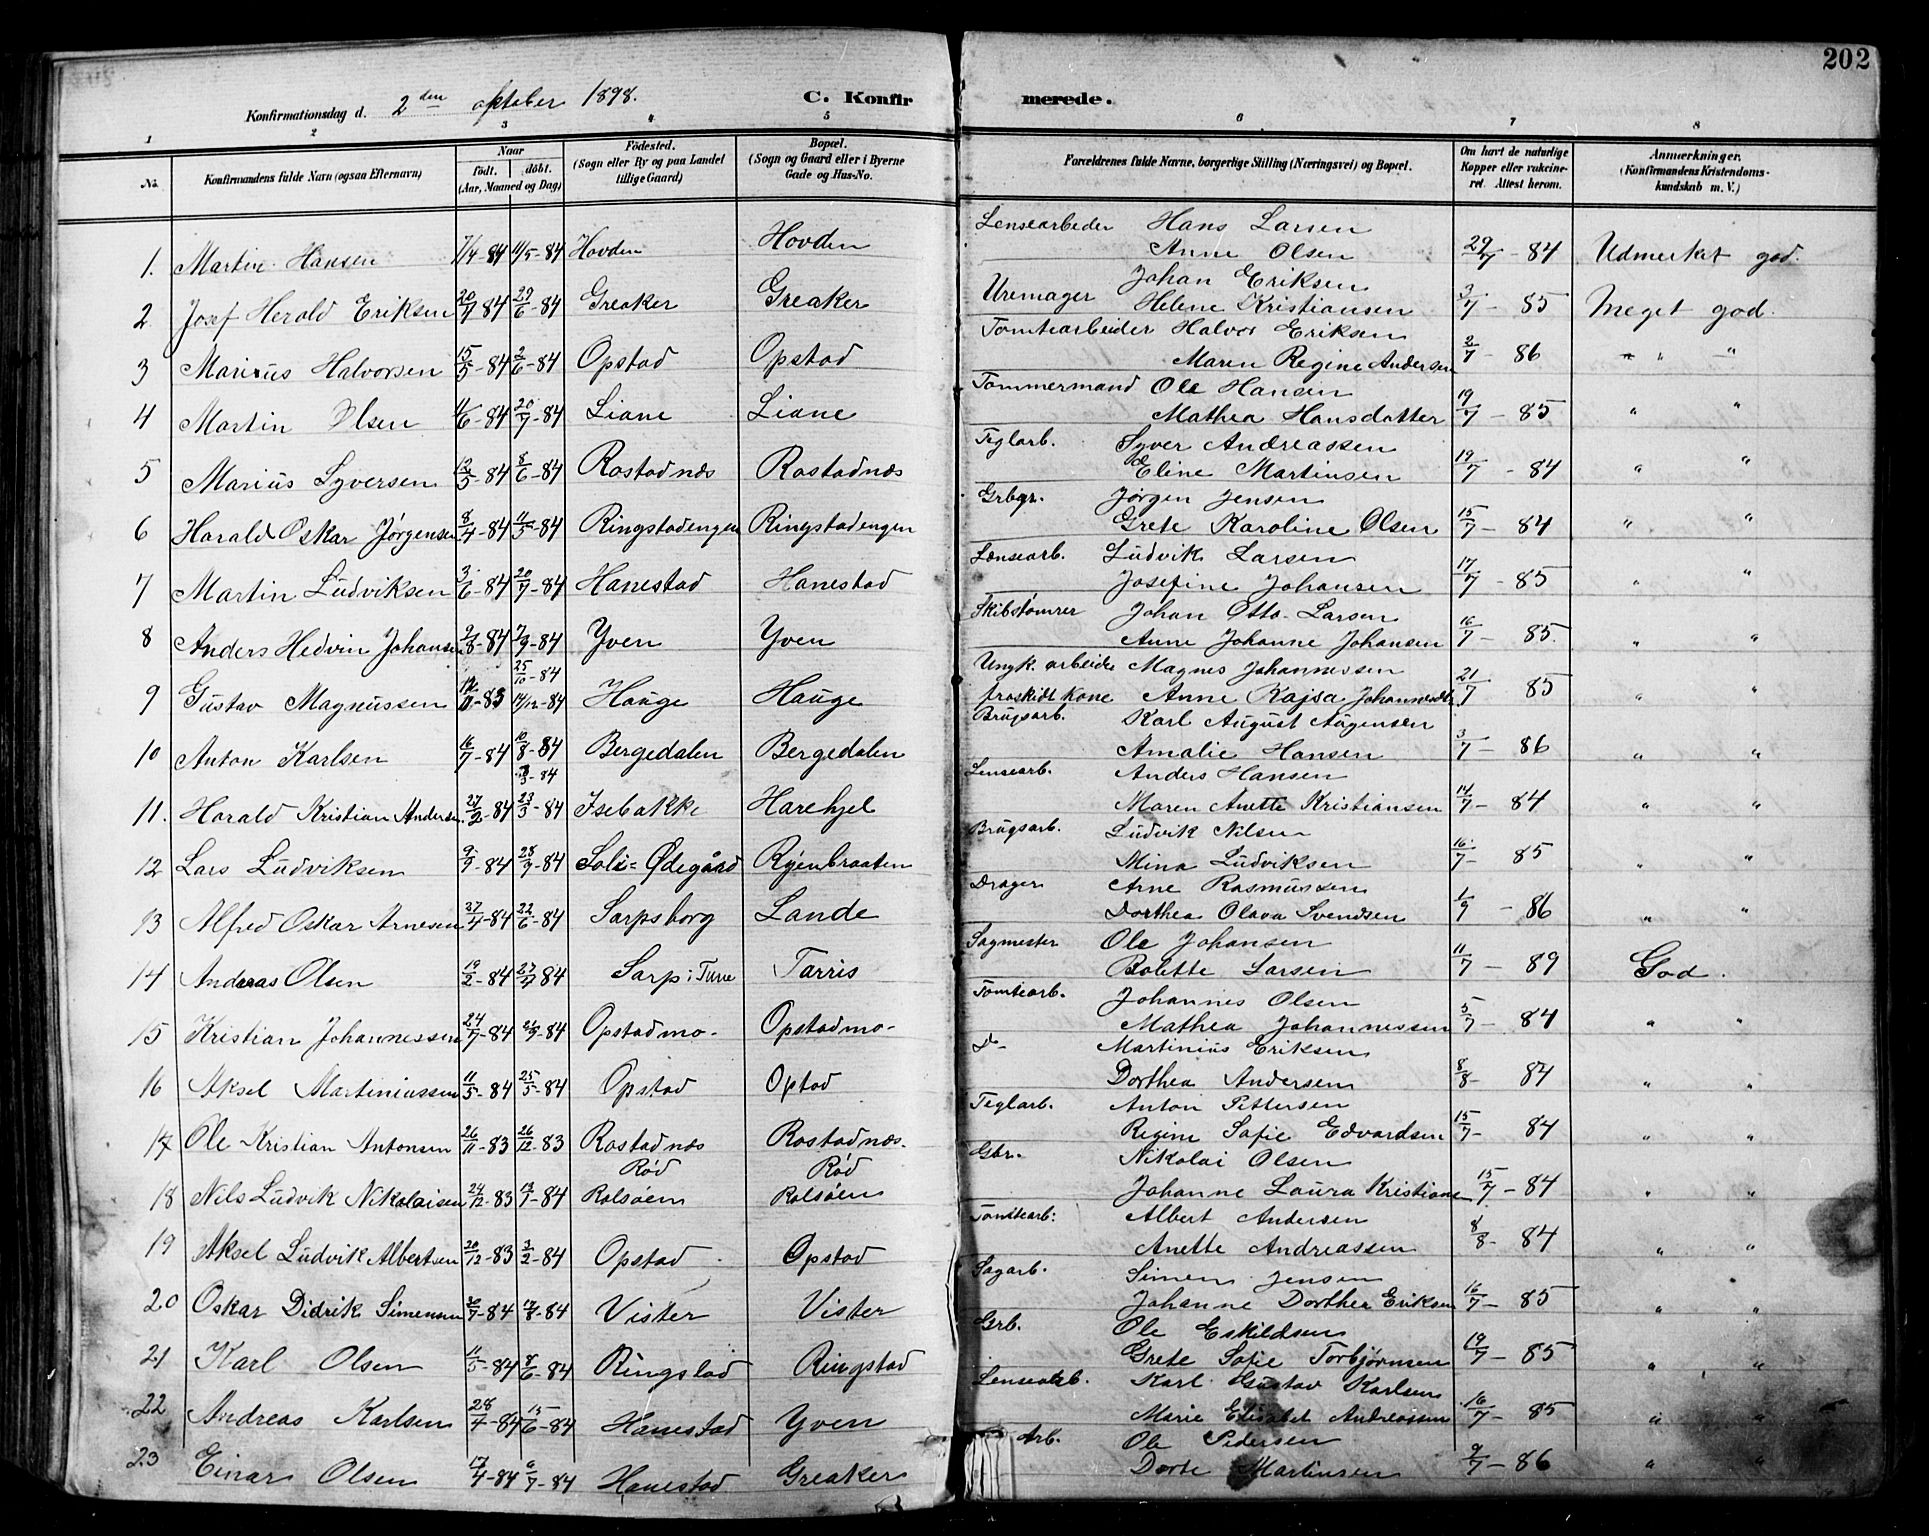 202
Konfirmationsdag d. 2den oktober 1898. C. Konfirmerede.
1 2 3 4 5 6 7 8
No. Konfirmandens fulde Navn (ogsaa Efternavn) Naar født. døbt. (Aar, Maaned og Dag) Fødested. (Sogn eller By og paa Landet tillige Gaard) Bopæl. (Sogn og Gaard eller i Byerne Gade og Hus-No. Forældrenes fulde Navne, borgerlige Stilling (Næringsvei) og Bopæl. Om havt de naturlige Kopper eller vakcineret. Attest herom. Anmærkninger. (Konfirmandens Kristendomskundskab m. V.)
1. Martin Hansen 7/4-84 11/5-84 Hovden Hovden Lensearbeder Hans Larsen
Anne Olsen 29/7-84 Udmerket god.
2 Josef Herald Eriksen 20/4 84 29/6-84 Greaker Greaker Uremager Johan Eriksen
Helene Kristiansen 3/7-85 Meget god.
3 Marius Halvorsen 15/5-84 2/6-84 Opstad Opstad Tomtearbeider Halvor Eriksen
Maren Regine Andersen 2/7-86 " "
4 Martin Olsen 11/6-84 20/7-84 Liane Liane Tømmermand Ole Hansen
Mathea Hansdatter 19/7-85 " "
5 Marius Syversen 12/5-84 8/6-84 Rostadnæs Rostadnæs Teglarb. Syver Andreassen
Eline Martinsen 19/7-84 " "
6 Harald Oskar Jørgensen 8/4-84 11/5-84 Ringstadengen Ringstadengen Grbgr. Jørgen Jensen
Grete Karoline Olsen 15/7-84 " "
7 Martin Ludviksen 3/6-84 20/7-84 Hanestad Hanestad Lensearb. Ludvik Larsen
Josefine Johansen 17/7-85 " "
8 Anders Hedvin Johansen 9/8-84 7/9-84 Yven Yven Skibstømrer Johan Otto Larsen
Anne Johanne Johansen 16/7-85. " "
25/10-84
9 Gustav Magnussen 83 14/12-84 Hauge Hauge Ungk. arbeide Magnes Johannessen
fraskidt kone Anne Kajsa 21/7 85 " "
10 Anton Karlsen 16/7-84 10/8-84 Bergedalen Bergedalen Brugsarb. Karl August Aagensen
Amalie Hansen 3/7-86 " "
11. Harald Kristian Andersen 27/2-84 23/3-84 Isebakke Harehjel Lensearb. Anders Hansen
Maren Anette Kristiansen 14/7-84 " "
12 Lars Ludviksen 9/9-84 28/9-84 Soli=Ødegård Ryenbraaten Brugsarb. Ludvik Nilsen
Mina Ludviksen 16/7-85 " "
13 Alfred Oskar Arnesen 27/4-84 22/6-84 Sarpsborg Lande Drager Arne Rasmussen
Dorthea Olava Svendsen 1/9-86 " "
14 Andreas Olsen 19/2-84 84 Sarp i Tune Tarris Sagmester Ole Johansen
Bolette Larsen 11/7-89 God.
15 Kristian Johannessen 24/7-84 84 Opstadmo- Opstadmo- Tomtearb. Johannes Olsen
Mathea Johannessen 5/7-84 " "
16 Aksel Martiniussen 11/5-84 25/5-84 Opstad Optad D- Martinius Eriksen
Dorthea Andersen 8/8- 84 " "
17 Ole Kristian Antonsen 26/11-83 26/12-83 Rostadnæs Rostadnæs. Teglarb. Anton Pettersen
Regine Sofie Edvardsen 15/7- 84 " "
18 Nils Ludvik Nikolaisen 24/12-83 13/1-84 Rød Rolsøen Rød Rolsøen Gbr. Nikolai Olsen
Johanne Laura Kristiane 15/7-84 " "
19 Aksel Ludvik Albertsen 20/12-83 3/2-84 Opstad Opstad Tomtearb: Albert Andersen
Anette Andreassen 8/8-84 " "
20 Oskar Didrik Simensen 84 17/8-84 Vister Vister Sagarb. Simen Jensen
Johanne Dorthea Eriksen 16/7-85 " "
21 Karl Olsen 11/5-84 8/6-84 Ringstad Ringstad Grb. Ole Eskildsen
Grete Sofie Torbjørnsen 19/7-85 " "
22 Andreas Karlsen 28/4-84 15/6-84 Hanestad Yven Lensearb. Karl Gustav Karlsen
Marie Elisabet Andreassen 16/7-85 " "
23 Einar Olsen 17/4-84 6/7-84 Hanestad Greaker Arb. Ole Pedersen
Dorte Martinsen 9/7-86 " "